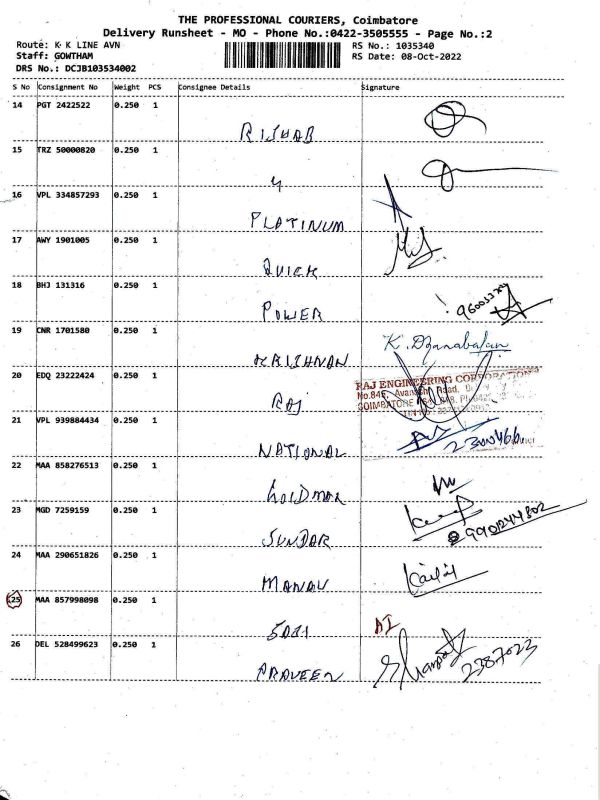 THE PROFESSIONAL COURIERS, Coimbatore
Delivery Runsheet - MO - Phone No.:0422-3505555 - Page No.:2
Route: K K LINE AVN
RS No.: 1035340
Staff: GOWTHAM
RS Date: 08-Oct-2022
DRS No.: DCJB103534002
S No Consignment No Weight PCS Consignee Details Signature
14 PGT 2422522 0.250 1
RISHAB
15 TRZ 50000820 0.250 1
4
16 VPL 334857293 0.250 1
PLATINUM
17 AWY 1901005 0.250 1
QUICK
18 BHJ 131316 0.250 1
POWER
19 CNR 1701580 0.250 1 K. Dhanabalan
KRISHNAN
20 EDQ 23222424 0.250 1 RAJ ENGINEERING CORPORATION
No.848, Avanashi Road,
COIMBATORE
RAJ
21 VPL 939884434 0.250 1
2300466
NATIONAL
22 MAA 858276513 0.250 1
GOLDMAN
23 MGD 7259159 0.250 1
9901244802
SUNDAR
24 MAA 290651826 0.250 1
MANAV
25 MAA 857998098 0.250 1
AI
26 DEL 528499623 0.250 1
2387023
PRAVEEN